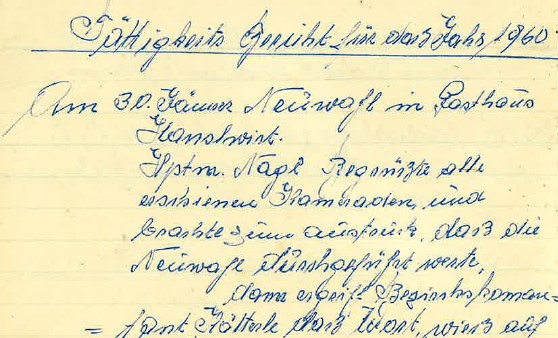 Tättigkeits Bericht für das Jahr 1960
Am 30. Jänner Neuwahl in Gasthaus
Hanslwirt.
Hptm. Nagl Begrüßte alle
erschienen Kameraden, und
brachte zum ausdruck, daß die
Neuwahl durchgeführt werte,
dann ergriff Bezirkskoman=
= dant das Wort, wies auf